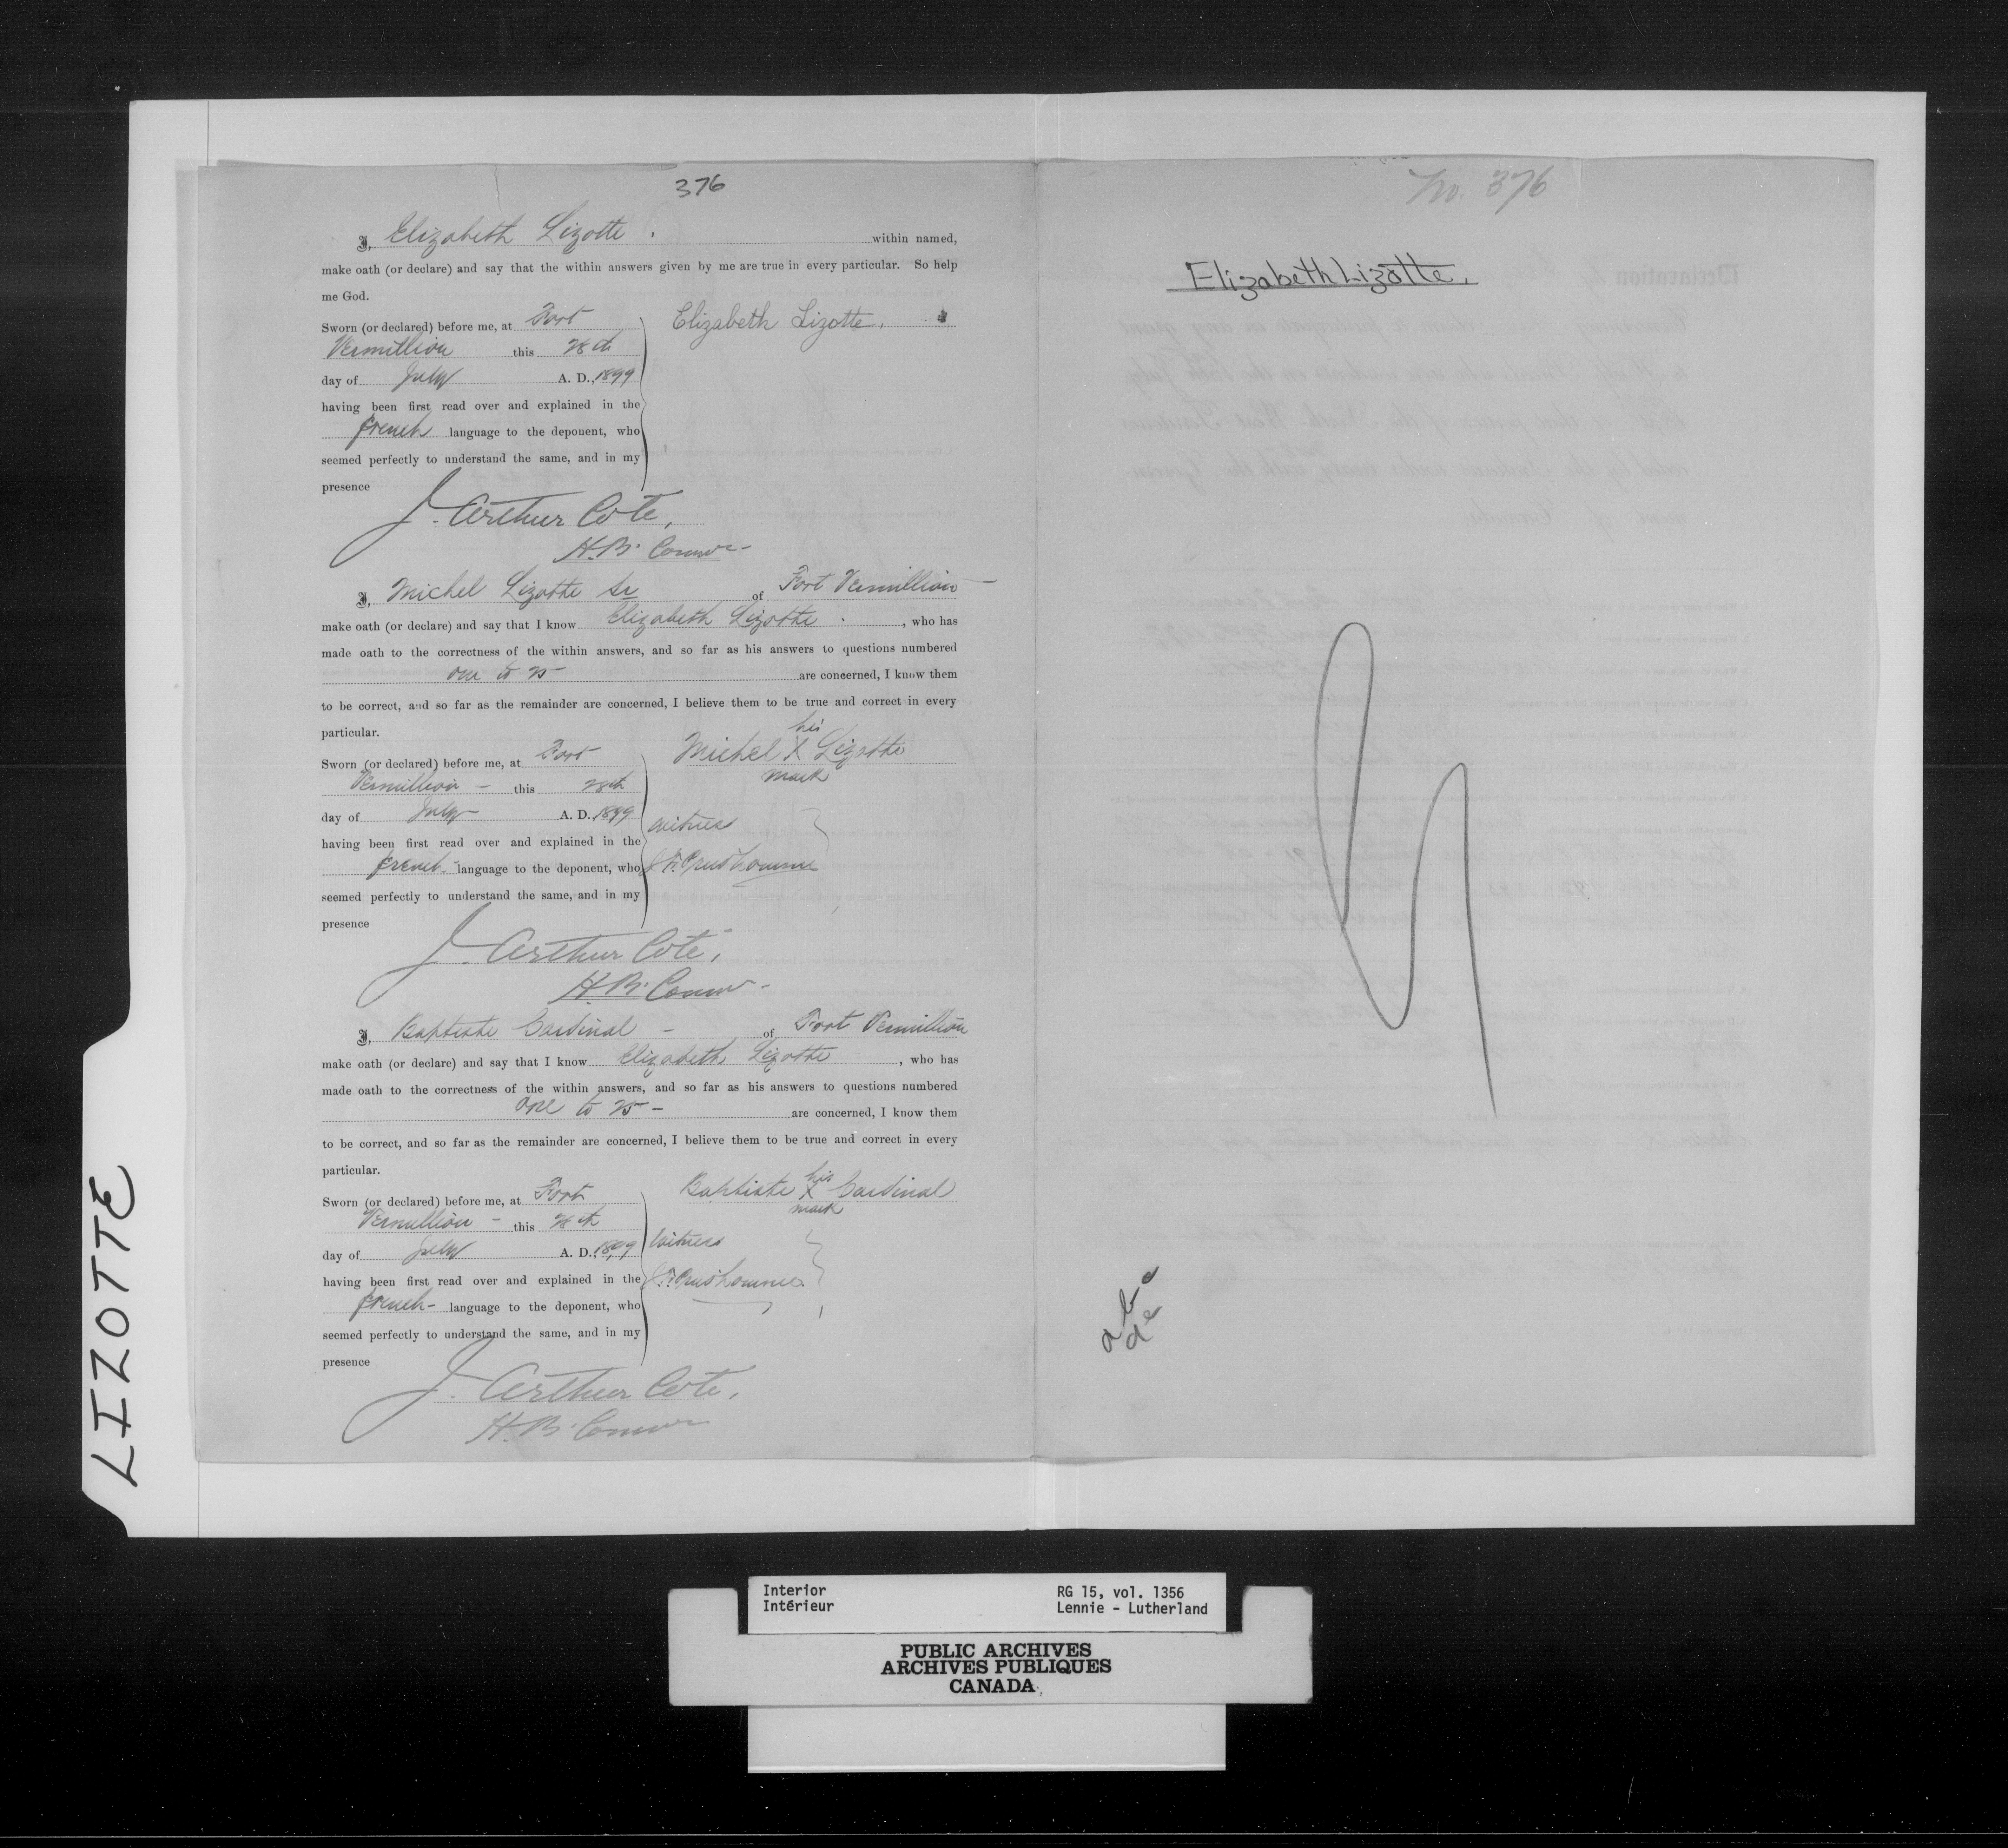 376
I, Elizabeth Lizotte within named,
make oath (or declare) and say that the within answers given by me are true in every particular. So help
me God.
Sworn (or declared) before me, at Fort
Vermillion this 28th
day of July A. D., 1899
having been first read over and explained in the
french language to the deponent, who
seemed perfectly to understand the same, and in my
presence
Elizabeth Lizotte.
J. Arthur Cote,
H.B. Comr
I, Michel Lizotte Sr of Fort Vermillion
make oath (or declare) and say that I know Elizabeth Lizotte, who has
made oath to the correctness of the within answers, and so far as his answers to questions numbered
one to 25 are concerned, I know them
to be correct, and so far as the remainder are concerned, I believe them to be true and correct in every
particular.
Sworn (or declared) before me, at Fort
Vermillion - this 28th
day of July A. D., 1899
having been first read over and explained in the
french language to the deponent, who
seemed perfectly to understand the same, and in my
presence
his
Michel X Lizotte
mark
witness
Prud'homme
J. Arthur Cote,
H.B. Comr -
I, Baptiste Cardinal - of Fort Vermillion
make oath (or declare) and say that I know Elizabeth Lizotte, who has
made oath to the correctness of the within answers, and so far as his answers to questions numbered
one to 25 - are concerned, I know them
to be correct, and so far as the remainder are concerned, I believe them to be true and correct in every
particular.
Sworn (or declared) before me, at Fort
Vermillion - this 28th
day of July A. D., 1899
having been first read over and explained in the
french - language to the deponent, who
seemed perfectly to understand the same, and in my
presence
his
Baptiste X Cardinal
mark
Witness
Prud'homme
J. Arthur Cote,
H.B. Comr
No. 376
Elizabeth Lizotte.
LIZOTTE
Interior
Intérieur
RG 15, vol. 1356
Lennie - Lutherland
PUBLIC ARCHIVES
ARCHIVES PUBLIQUES
CANADA